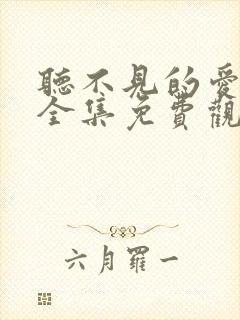 聽不見的愛
全集免費觀
六月羅一